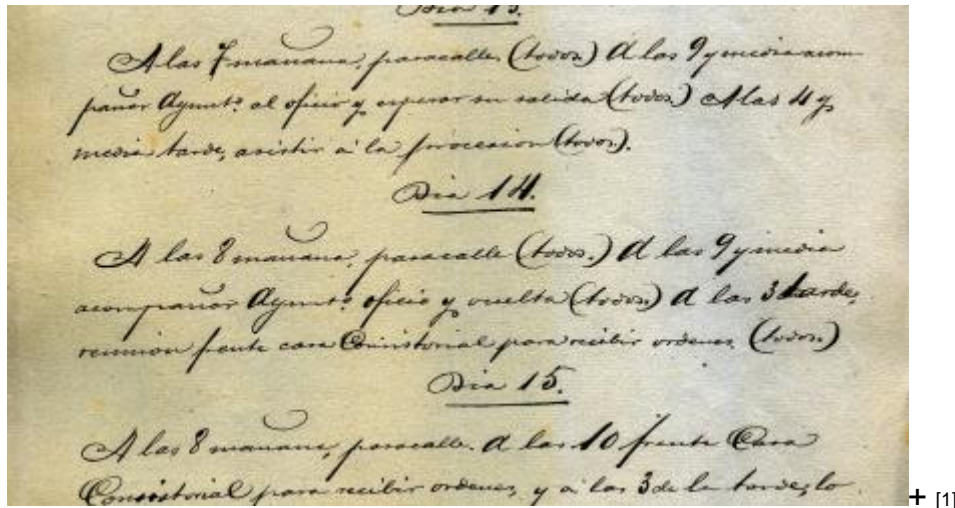 Dia 13.
A las 7 mañana, paracalle, (todos) A las 9 y media acom
pañar Ayunto. al oficio y esperar su salida (todos.) A las 4 y
media tarde, asistir á la procesion (todos).
Dia 14.
A las 8 mañana, paracalle (todos.) A las 9 y media
acompañar Ayunto. oficio y vuelta (todos) A las 3 tarde,
reunion frente casa Consistorial para recibir ordenes, (todos.)
Dia 15.
A las 8 mañana, paracalle. A las 10 frente Casa
Consistorial para recibir ordenes, y á las 3 de la tarde, lo
+ [1]